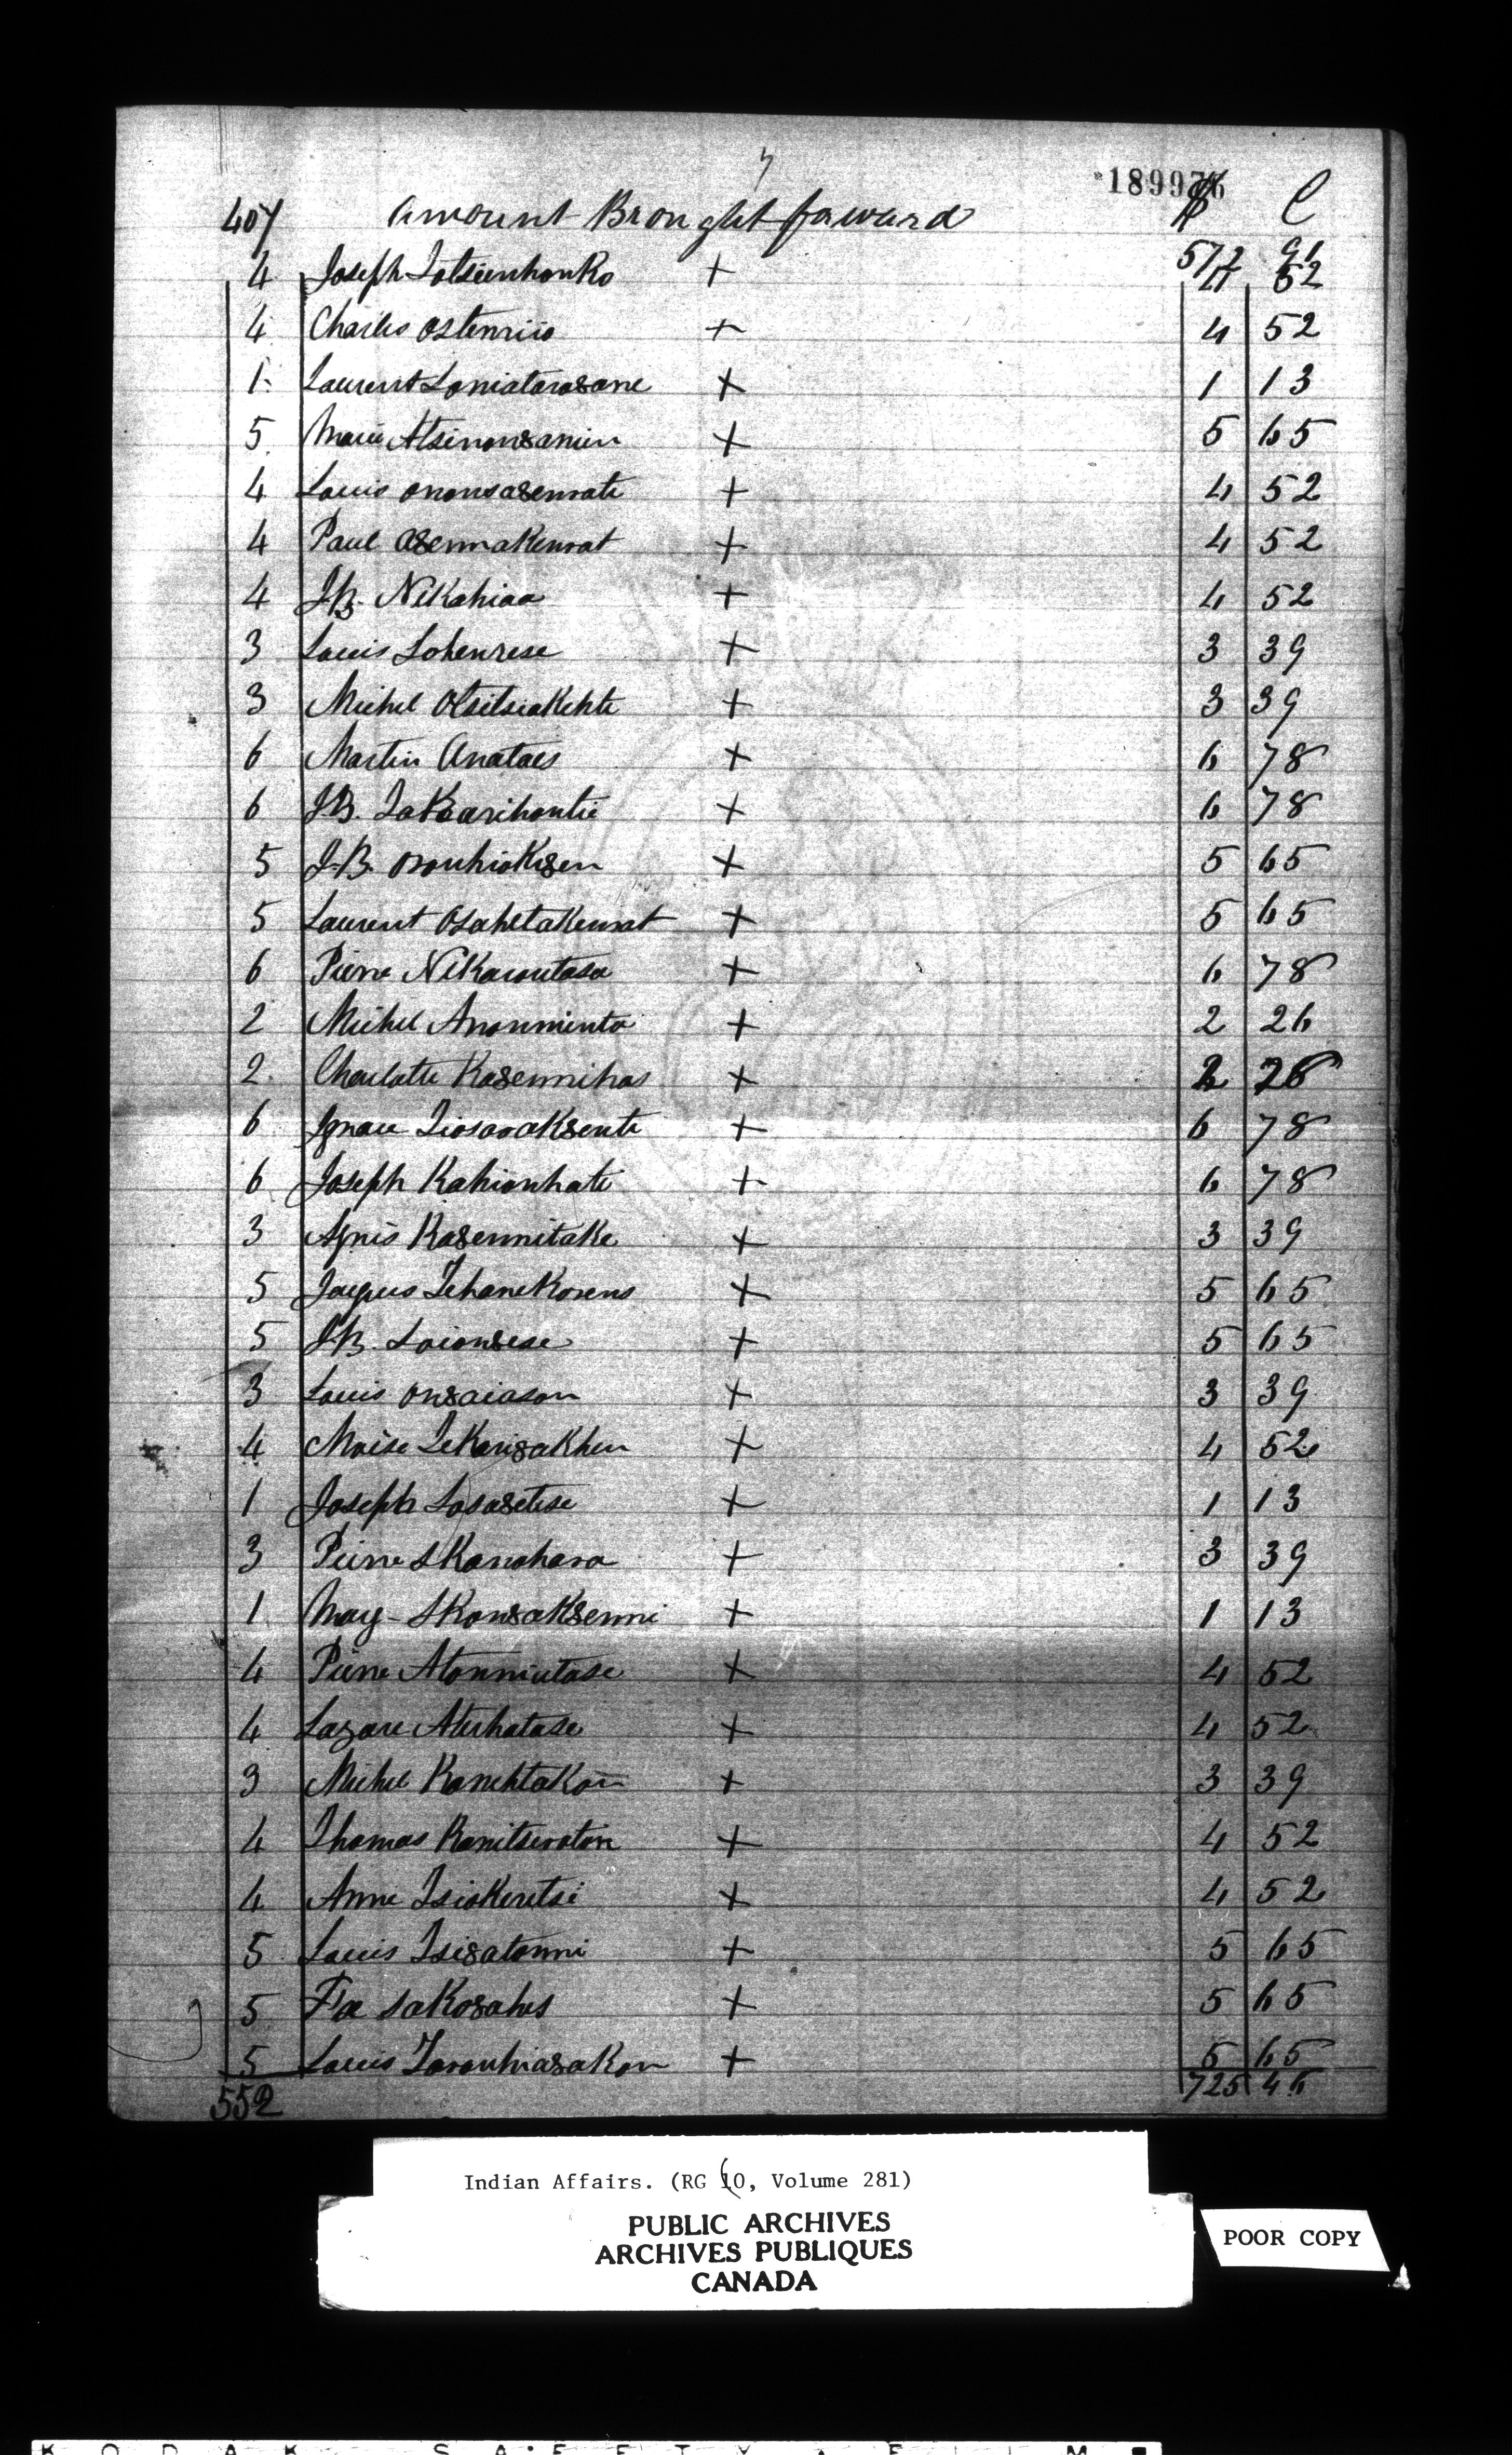 7
189976
407 Amount Brought forward $ C
572 91
4 Joseph Totsienhonko + 4 52
4 Charles Ostenriio + 4 52
1 Laurent Soniatarasane + 1 13
5 Marie Atsinon8anien + 5 65
4 Louis Ononsa8enrate + 4 52
4 Paul A8ennakenrat + 4 52
4 J.B. Nikahiaa + 4 52
3 Louis Sohenrese + 3 39
3 Michel Otsitsiakehte + 3 39
6 Martin Anataes + 6 78
6 J.B. + 6 78
5 J.B. Oronhiok8en + 5 65
5 Laurent Osahetakenrat + 5 65
6 Pierre Nikarontasa + 6 78
2 Michel Anonminta + 2 26
2 Charlotte Ka8ennihas + 2 26
6 Ignace Tiosarak8ente + 6 78
6 Joseph Kahionhate + 6 78
3 Agnis Ka8ennitake + 3 39
5 Jaques Tehanekorens + 5 65
5 J.B. Soion8ese + 5 65
3 Louis On8aiason + 3 39
4 Moise Tekari8akhen + 4 52
1 Joseph Sosa8etese + 1 13
3 Pierre Skanahara + 3 39
1 Mag- Skon8ak8enni + 1 13
4 Pierre Atonniatase + 4 52
4 Lazare Aterhatase + 4 52
3 Michel Kanehtakon + 3 39
4 Thomas Kanitseraton + 4 52
4 Anne Tsiokeretsi + 4 52
5 Louis Tsi8atonni + 5 65
5 sako8ahes + 5 65
5 Louis Taronhia8akon + 5 65
552 725 46
Indian Affairs. (RG 10, Volume 281)
PUBLIC ARCHIVES
ARCHIVES PUBLIQUES
CANADA
POOR COPY
KODAK SAFETY FILM